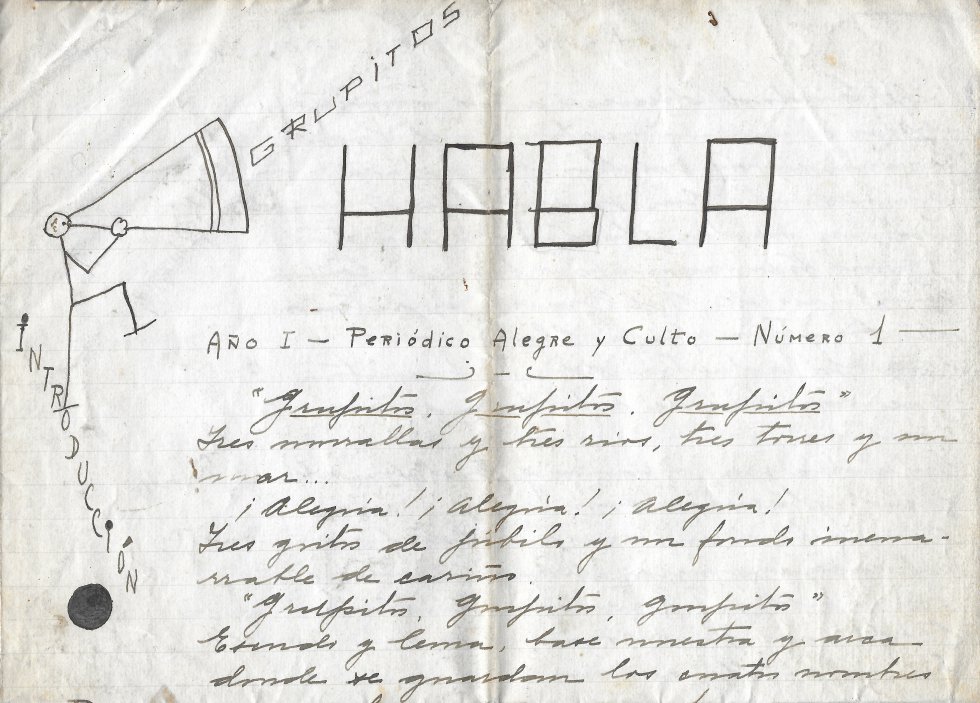 GRUPiTOS
HABLA
INTRODUCCIÓN
AÑO I — PERIÓDICO ALEGRE Y CULTO — NÚMERO 1
"Grupitos, Grupitos, Grupitos"
Tres murallas y tres rios, tres torres y un
mar...
¡Alegría! ¡Alegría! ¡Alegría!
Tres gritos de júbilo y un fondo inena-
rrable de cariño.
"Grupitos, Grupitos, grupitos"
Escudo y lema, base nuestra y arca
donde se guardan los cuatro nombres